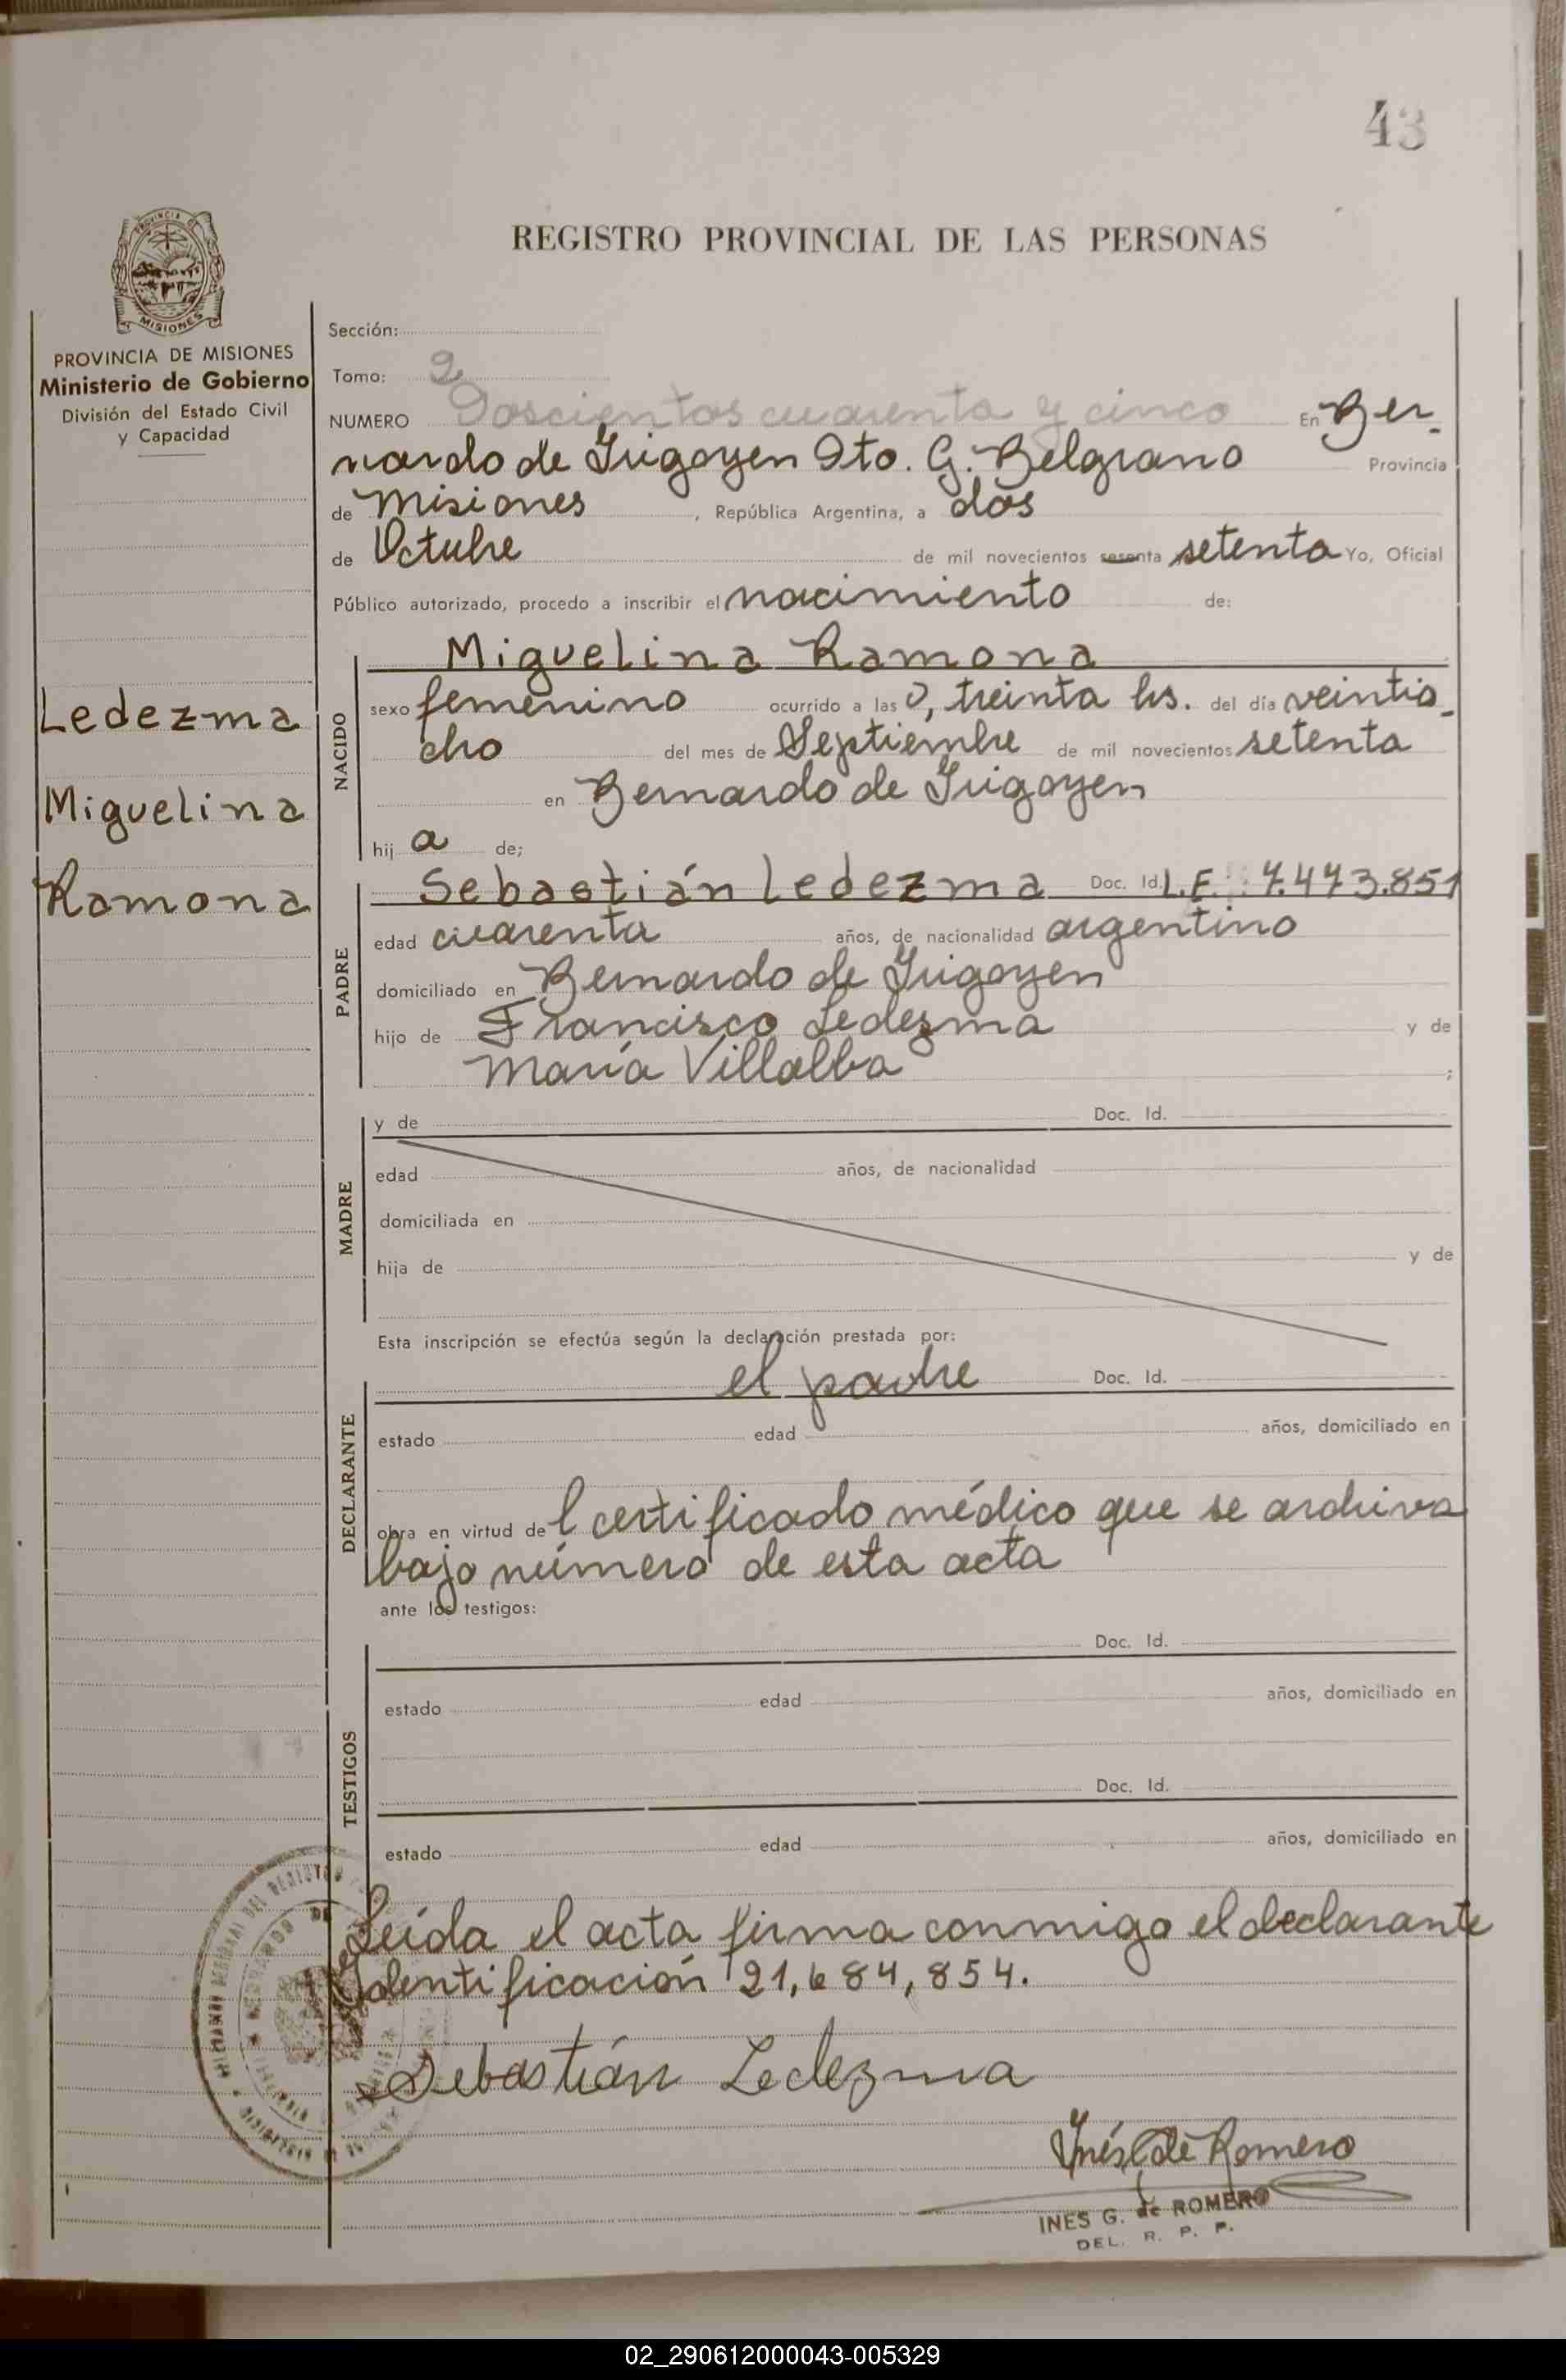 43
PROVINCIA DE
MISIONES
REGISTRO PROVINCIAL DE LAS PERSONAS
PROVINCIA DE MISIONES
Ministerio de Gobierno
División del Estado Civil
y Capacidad
Ledezma
Miguelina
Ramona
Sección:
Tomo: 2
NUMERO Doscientos cuarenta y cinco En Ber-
nardo de Irigoyen Dto. G. Belgrano Provincia
de Misiones , República Argentina, a dos
de Octubre de mil novecientos sesenta setenta Yo, Oficial
Público autorizado, procedo a inscribir el nacimiento de:
NACIDO
Miguelina Ramona
sexo femenino ocurrido a las 0, treinta hs. del día veintio-
cho del mes de Septiembre de mil novecientos setenta
en Bernardo de Irigoyen
hij a de;
PADRE
Sebastián Ledezma Doc. Id. L.E. 7.473.851
edad cuarenta años, de nacionalidad argentino
domiciliado en Bernardo de Irigoyen
hijo de Francisco Ledezma y de
María Villalba ;
MADRE
y de Doc. Id.
edad años, de nacionalidad
domiciliada en
hija de y de
Esta inscripción se efectúa según la declaración prestada por:
DECLARANTE
el padre Doc. Id.
estado edad años, domiciliado en
obra en virtud de l certificado médico que se archiva
bajo número de esta acta
ante los testigos:
TESTIGOS
Doc. Id.
estado edad años, domiciliado en
Doc. Id.
estado edad años, domiciliado en
Leída el acta firma conmigo el declarante
Identificación 21,684,854.
Sebastián Ledezma
Inés G. de Romero
INES G. de ROMERO
DEL. R. P. P.
02_290612000043-005329